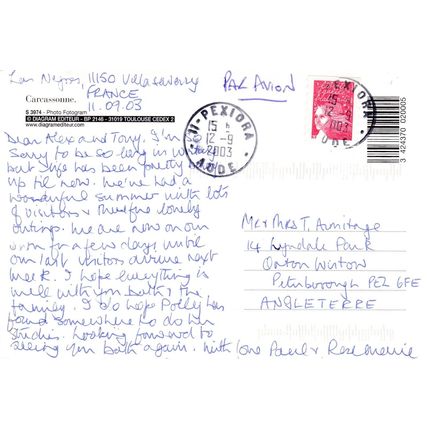 Las Negres, 11150 Villasavary
FRANCE
11.09.03
Carcassonne.
S 3974 - Photo Fotogram
© DIAGRAM EDITEUR - BP 2146 - 31019 TOULOUSE CEDEX 2
www.diagramediteur.com
PAR AVION
11 - PEXIORA
15 H
12 - 9
2003
AUDE
3 424370 020005
Dear Alex and Tony, I'm so
sorry to be so long in
but life has been pretty
up til now. We've had a
wonderful summer with lots
of visitors & therefore lovely
outings. We are now on our
own for a few days until
our last visitors arrive next
week. I hope everything is
well with you both & the
family. I do hope Polly has
found somewhere to do her
studies. Looking forward to
seeing you both again. With love Paul & Rosemarie
Mr & Mrs T. Armitage
14 Lyndale Park
Orton Wistow
Peterborough PE2 6FE
ANGLETERRE